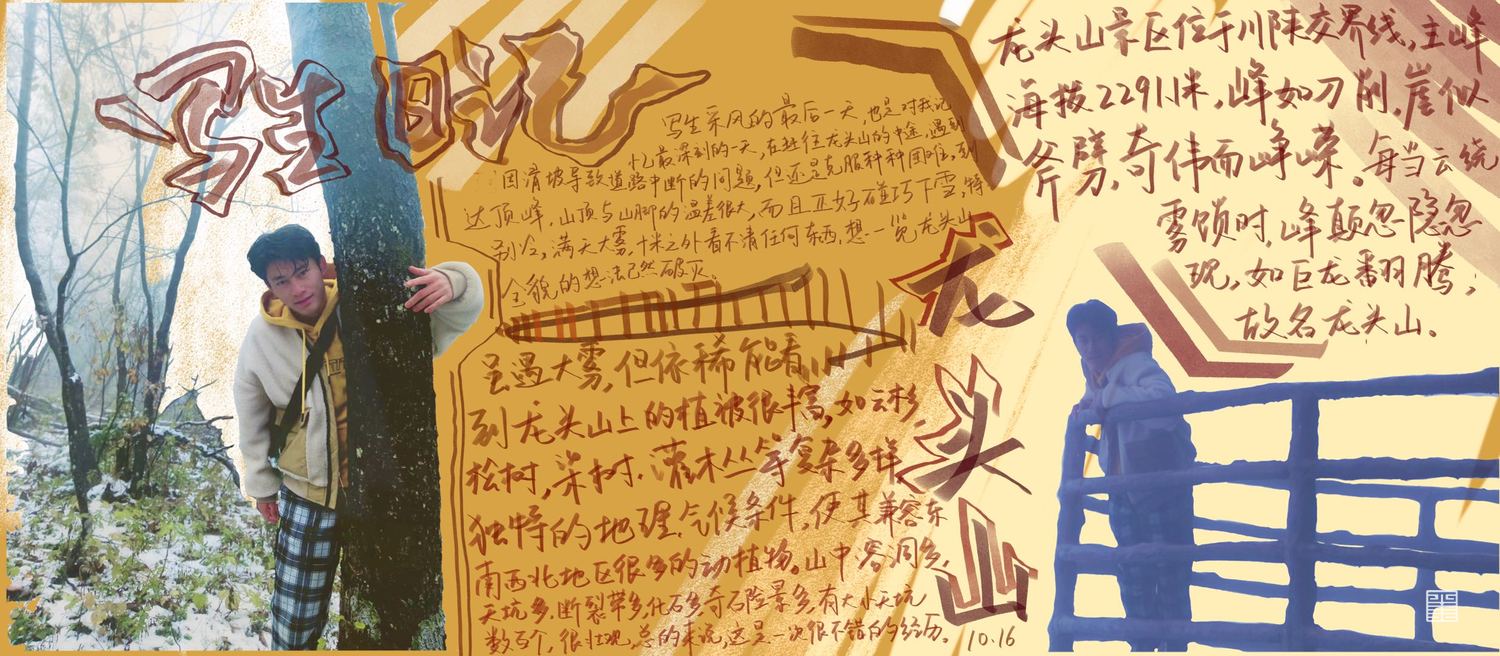 写生日记
写生采风的最后一天,也是对我记
忆最深刻的一天,在赶往龙头山的中途,遇到
因滑坡导致道路中断的问题,但还是克服种种困难,到
达顶峰,山顶与山脚的温差很大,而且正好碰巧下雪,特
别冷,满天大雾,十米之外看不清任何东西,想一览龙头山
全貌的想法已然破灭。
呈遇大雾,但依稀能看
到龙头山上的植被很丰富,如云杉,
松树,柒树,灌木丛等复杂多样
独特的地理,气候条件,使其兼容东
南西北地区很多的动植物。山中溶洞多,
天坑多,断裂带多,化石多,奇石险景多,有大小天坑
数百个,很壮观,总的来说,这是一次很不错的经历。
10.16
龙头山
龙头山景区位于川陕交界线,主峰
海拔2291.1米,峰如刀削,崖似
斧劈,奇伟而峥嵘。每当云绕
雾锁时,峰颠忽隐忽
现,如巨龙翻腾;
故名龙头山。